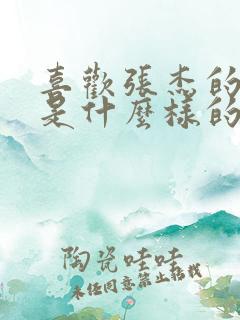 喜歡張杰的
是什麼樣的
陶瓷哇哇
未經同意禁止搭載